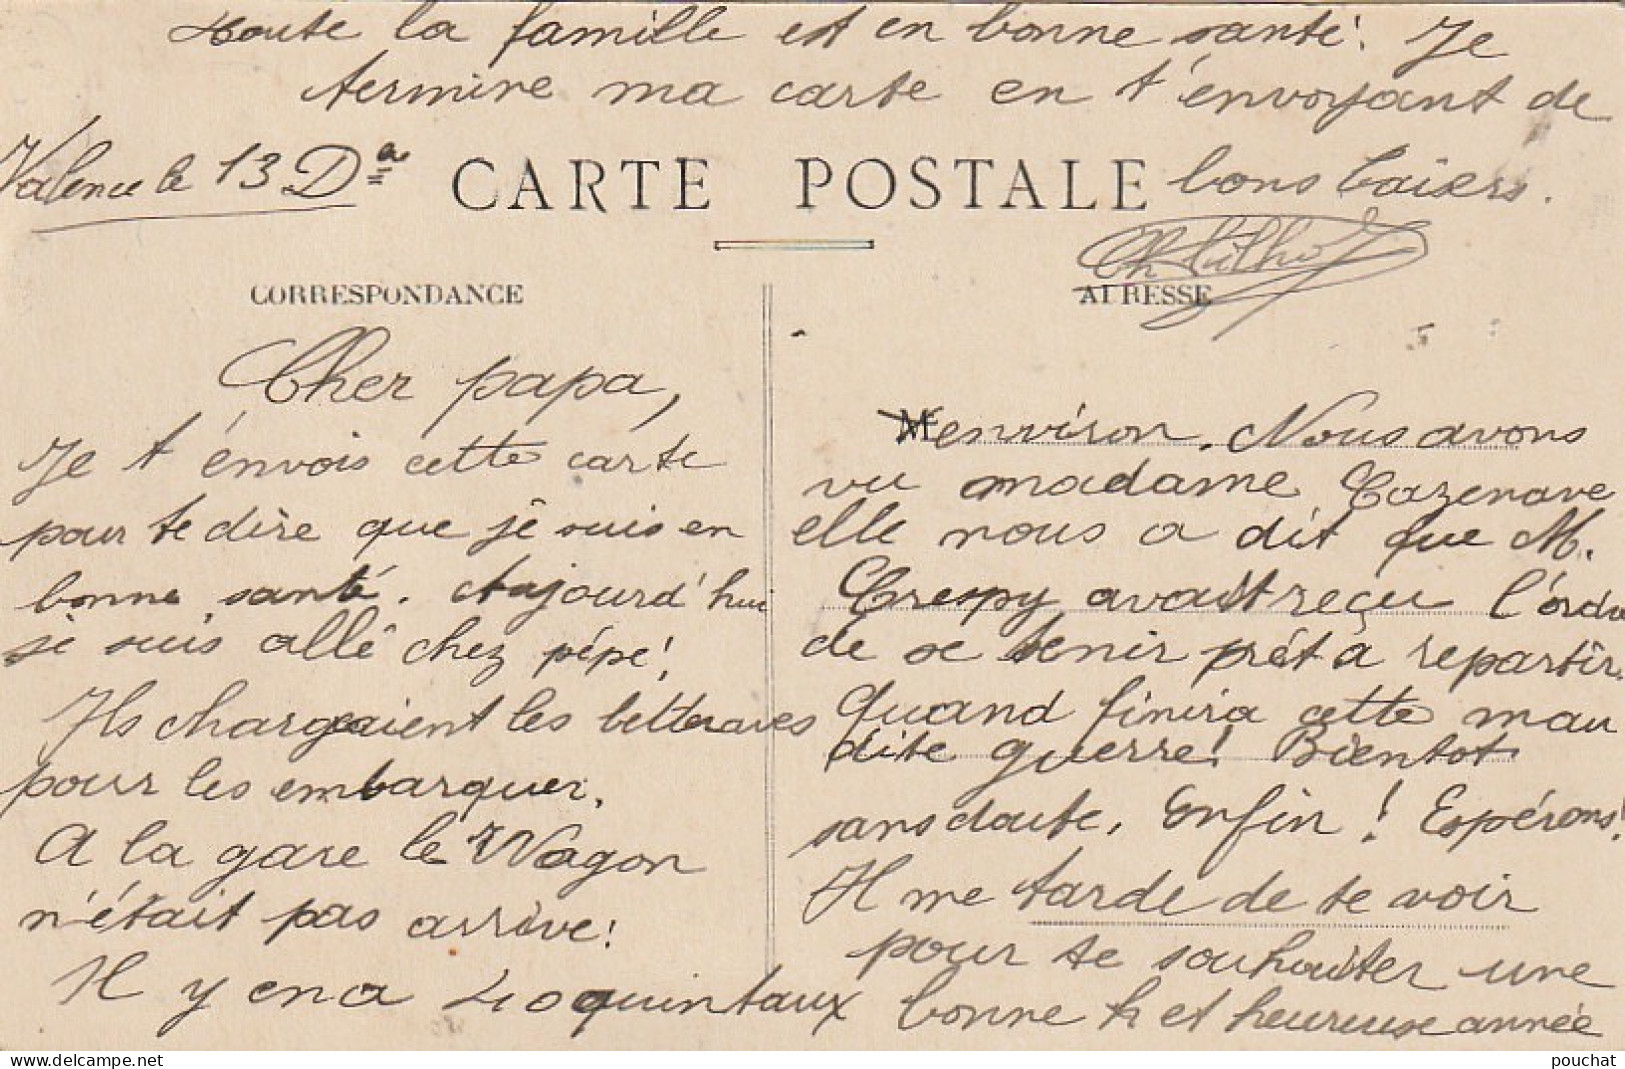 Toute la famille est en bonne santé. Je
termine ma carte en t'envoyant de
bons baisers.
Valence le 13 Dbre
CARTE POSTALE
CORRESPONDANCE
ADRESSE
Cher papa,
Je t'envois cette carte
pour te dire que je suis en
bonne santé. Aujourd'hui
je suis allé chez pépé!
Ils chargeaient les betteraves
pour les embarquer.
A la gare le Wagon
n'était pas arrivé!
Il y en a 40 quintaux
M environ. Nous avons
vu madame Cazenave
elle nous a dit que M.
Crespy avait reçu l'ordre
de se tenir prêt a repartir.
Quand finira cette mau
dite guerre! Bientot
sans doute. Enfin! Espérons!
Il me tarde de te voir
pour te souhaiter une
bonne et heureuse année
pouchat